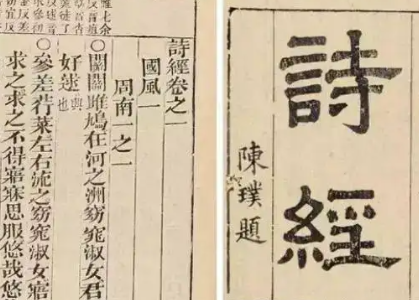 詩經
陳璞題
詩經卷之一
國風一
周南一之一
〇關關雎鳩在河之洲窈窕淑女君
好逑興也
〇參差荇菜左右流之窈窕淑女寤
求之求之不得寤寐思服悠哉悠